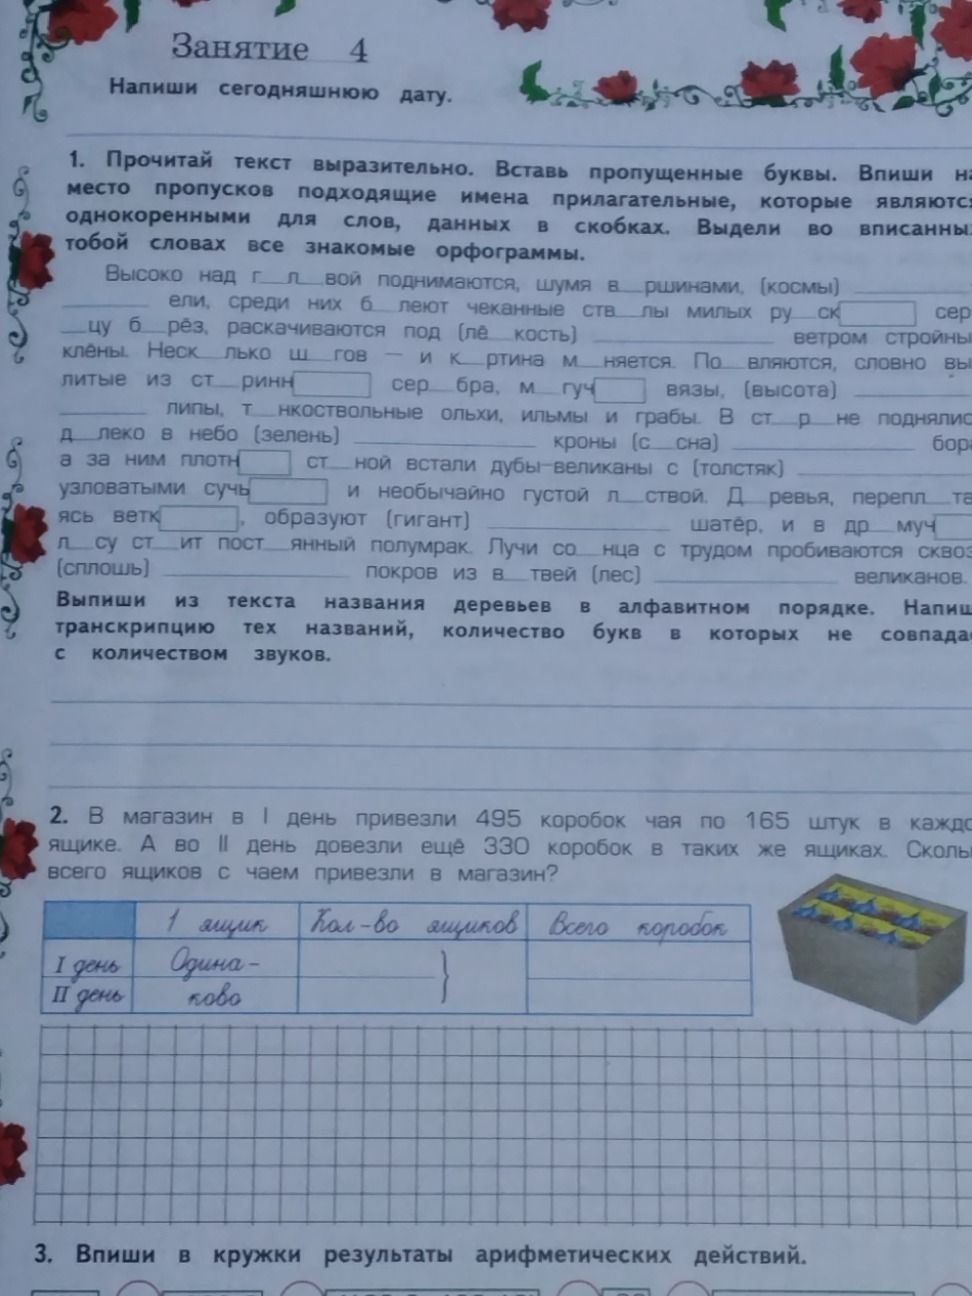 Занятие 4
Напиши сегодняшнюю дату.
1. Прочитай текст выразительно. Вставь пропущенные буквы. Впиши на
место пропусков подходящие имена прилагательные, которые являются
однокоренными для слов, данных в скобках. Выдели во вписанных
тобой словах все знакомые орфограммы.
Высоко над г__л__вой поднимаются, шумя в__ршинами, (космы) ______
______ ели, среди них б__леют чеканные ств__лы милых ру__ск____ сер-
__цу б__рёз, раскачиваются под (лё__кость) ______ ветром стройны
клёны. Неск__лько ш__гов — и к__ртина м__няется. По__вляются, словно вы
литые из ст__ринн____ сер__бра, м__гуч____ вязы, (высота) ______
______ липы, т__нкоствольные ольхи, ильмы и грабы. В ст__р__не поднялис
д__леко в небо (зелень) ______ кроны (с__сна) ______ бора
а за ним плотн____ ст__ной встали дубы-великаны с (толстяк) ______
узловатыми сучь____ и необычайно густой л__ствой. Д__ревья, перепл__та
ясь ветк____, образуют (гигант) ______ шатёр, и в др__муч____
л__су ст__ит пост__янный полумрак. Лучи со__нца с трудом пробиваются сквоз
(сплошь) ______ покров из в__твей (лес) ______ великанов.
Выпиши из текста названия деревьев в алфавитном порядке. Напиш
транскрипцию тех названий, количество букв в которых не совпадае
с количеством звуков.
2. В магазин в I день привезли 495 коробок чая по 165 штук в каждо
ящике. А во II день довезли ещё 330 коробок в таких же ящиках. Сколь
всего ящиков с чаем привезли в магазин?
1 ящик Кол-во ящиков Всего коробок
I день Одина-
II день ково
3. Впиши в кружки результаты арифметических действий.